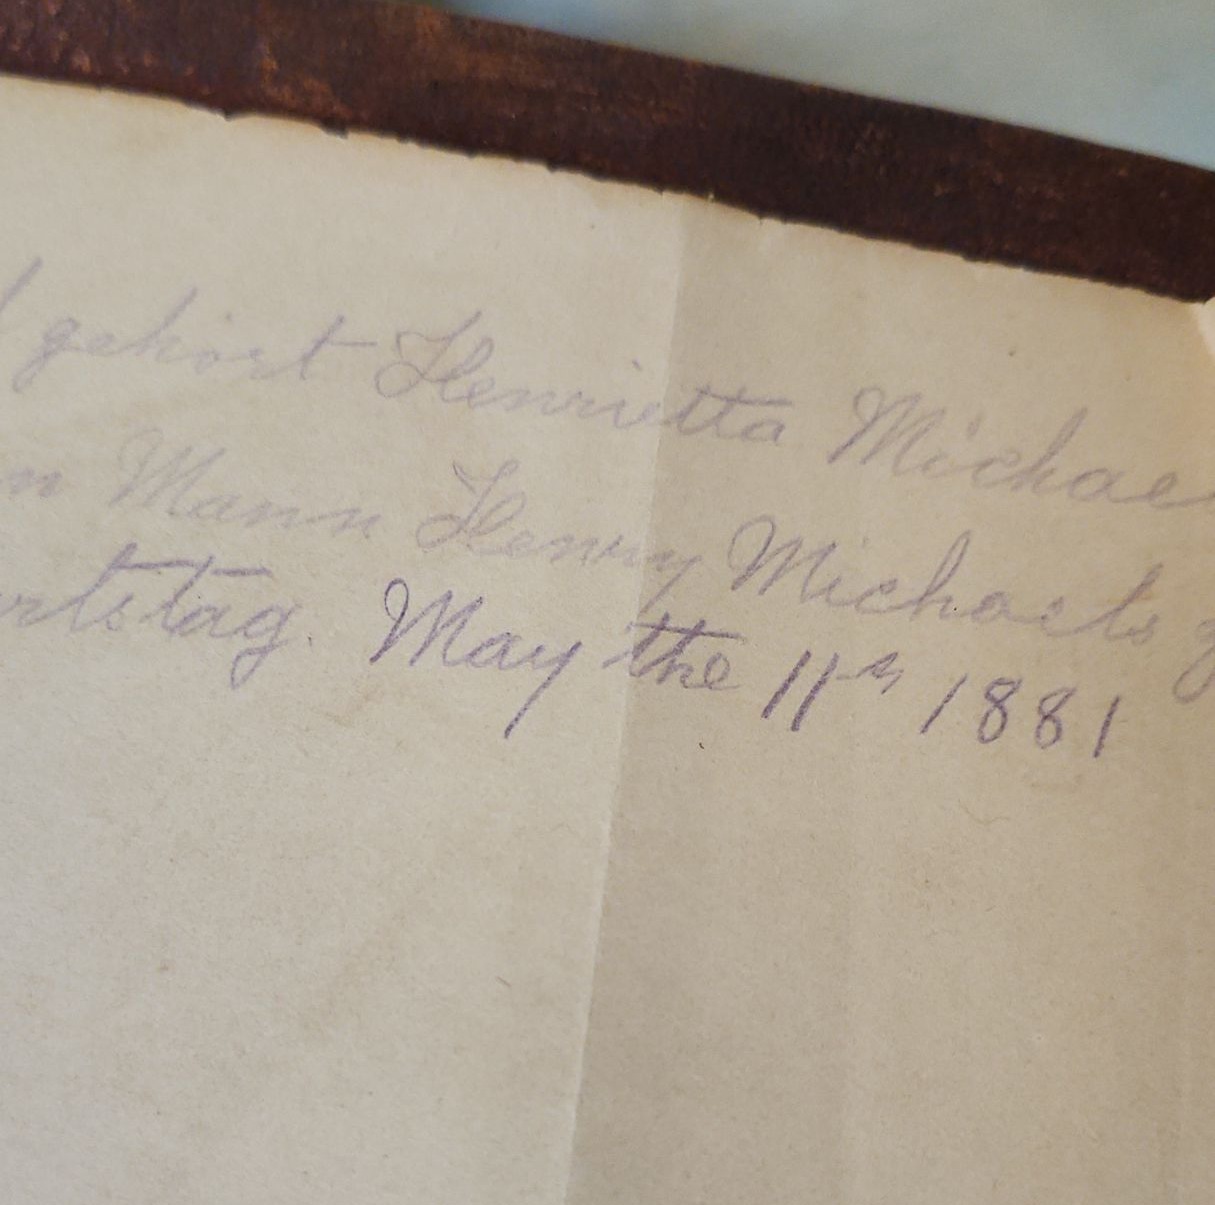 gehört Henrietta Michae
n Mann Henry Michaels g
rtstag. May the 11th 1881